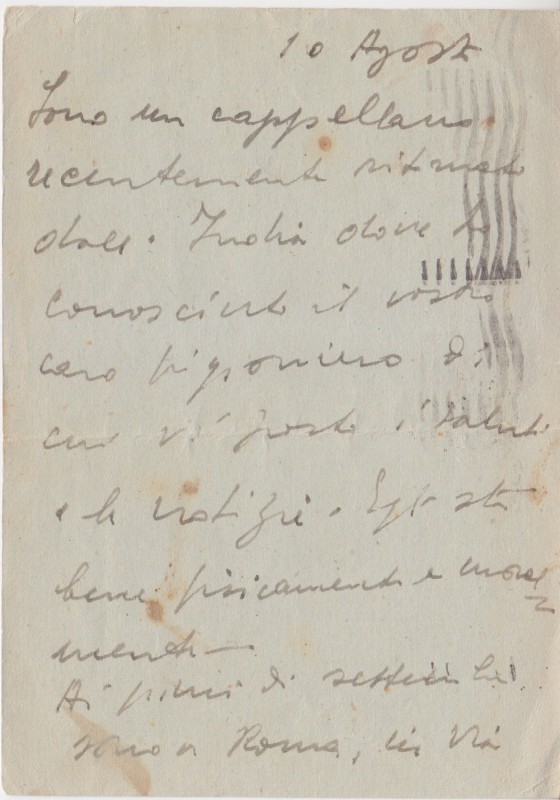 10 Agosto
Sono un cappellano
recentemente ritornato
dall' India dove ho
conosciuto il vostro
caro prigioniero di
cui vi porto i saluti
e le notizie. Egli sta
bene fisicamente e moral
mente
Ai primi di settembre
sono a Roma, in Via